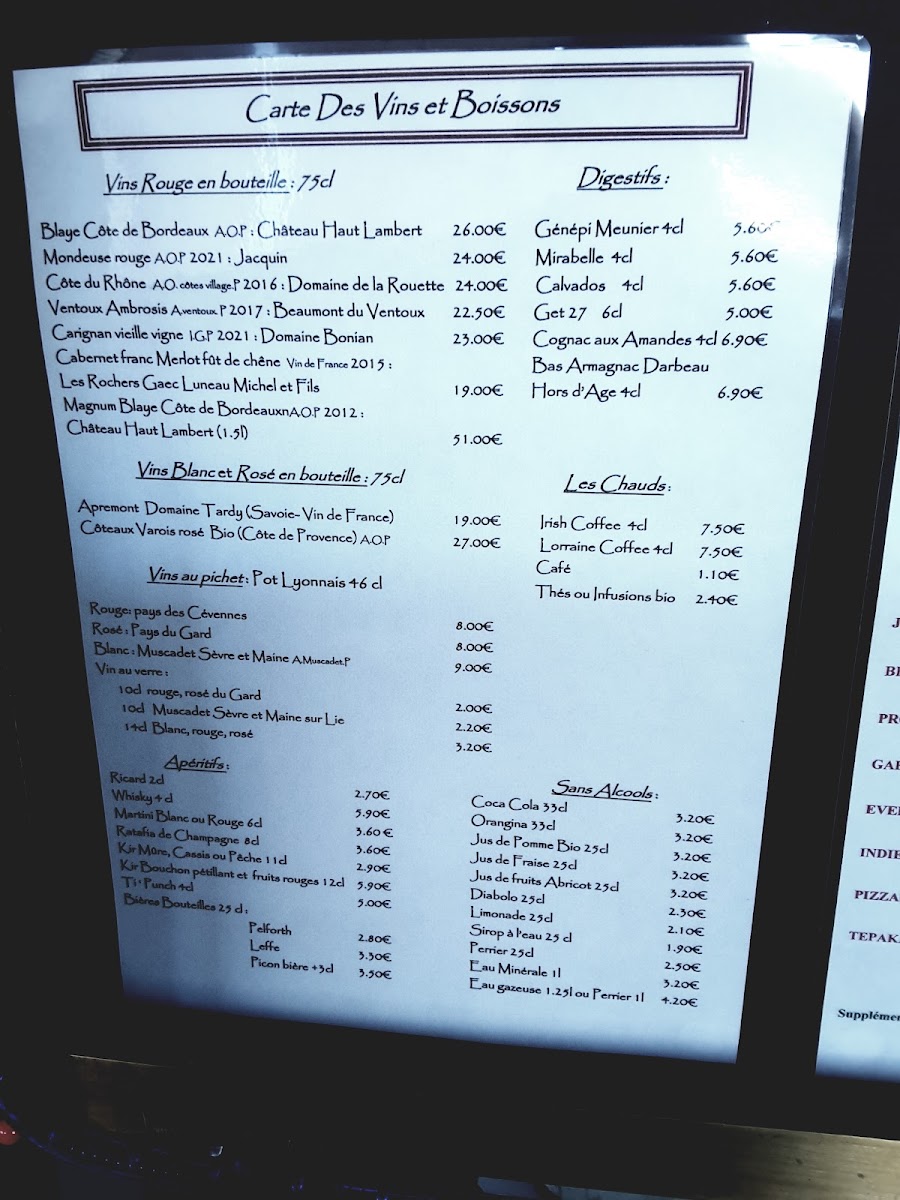 Carte Des Vins et Boissons
Vins Rouge en bouteille : 75cl
Blaye Côte de Bordeaux A.O.P : Château Haut Lambert 26.00€
Mondeuse rouge A.O.P 2021 : Jacquin 24.00€
Côte du Rhône A.O. côtes village.P 2016 : Domaine de la Rouette 24.00€
Ventoux Ambrosis A.ventoux.P 2017 : Beaumont du Ventoux 22.50€
Carignan vieille vigne I.G.P 2021 : Domaine Bonian 23.00€
Cabernet franc Merlot fût de chêne Vin de France 2015 :
Les Rochers Gaec Luneau Michel et Fils 19.00€
Magnum Blaye Côte de BordeauxnA.O.P 2012 :
Château Haut Lambert (1.5l) 51.00€
Vins Blanc et Rosé en bouteille : 75cl
Apremont Domaine Tardy (Savoie-Vin de France) 19.00€
Côteaux Varois rosé Bio (Côte de Provence) A.O.P 27.00€
Vins au pichet : Pot Lyonnais 46 cl
Rouge: pays des Cévennes 8.00€
Rosé : Pays du Gard 8.00€
Blanc : Muscadet Sèvre et Maine A.Muscadet.P 9.00€
Vin au verre :
10cl rouge, rosé du Gard 2.00€
10cl Muscadet Sèvre et Maine sur Lie 2.20€
14cl Blanc, rouge, rosé 3.20€
Apéritifs :
Ricard 2cl 2.70€
Whisky 4 cl 5.90€
Martini Blanc ou Rouge 6cl 3.60 €
Ratafia de Champagne 8cl 3.60€
Kir Mûre, Cassis ou Pêche 11cl 2.90€
Kir Bouchon pétillant et fruits rouges 12cl 5.90€
Ti' Punch 4cl 5.00€
Bières Bouteilles 25 cl :
Pelforth 2.80€
Leffe 3.30€
Picon bière +3cl 3.50€
Digestifs :
Génépi Meunier 4cl 5.60€
Mirabelle 4cl 5.60€
Calvados 4cl 5.60€
Get 27 6cl 5.00€
Cognac aux Amandes 4cl 6.90€
Bas Armagnac Darbeau
Hors d'Age 4cl 6.90€
Les Chauds :
Irish Coffee 4cl 7.50€
Lorraine Coffee 4cl 7.50€
Café 1.10€
Thés ou Infusions bio 2.40€
Sans Alcools :
Coca Cola 33cl 3.20€
Orangina 33cl 3.20€
Jus de Pomme Bio 25cl 3.20€
Jus de Fraise 25cl 3.20€
Jus de fruits Abricot 25cl 3.20€
Diabolo 25cl 2.30€
Limonade 25cl 2.10€
Sirop à l'eau 25 cl 1.90€
Perrier 25cl 2.50€
Eau Minérale 1l 3.20€
Eau gazeuse 1.25l ou Perrier 1l 4.20€
J
BE
PRO
GAR
EVE
INDIE
PIZZA
TEPAK
Supplémen